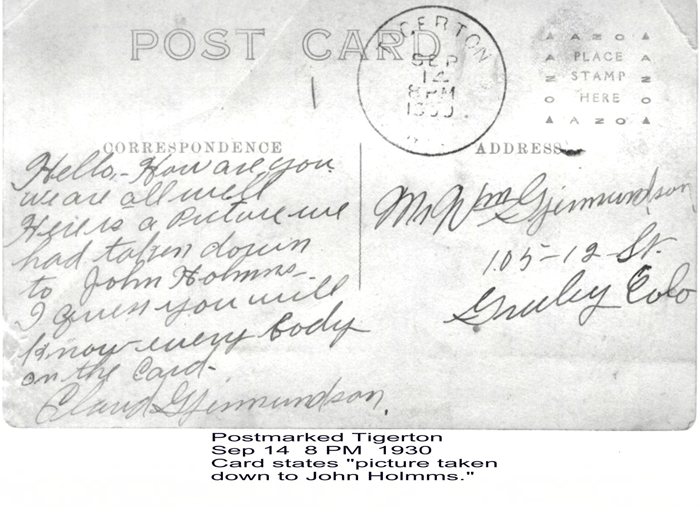 POST CARD
TIGERTON
SEP
14
8 PM
1930
AZO
PLACE
STAMP
HERE
AZO
CORRESPONDENCE
ADDRESS
Hello.- How are you
we are all well
Here is a Picture we
had taken down
to John Holmms-
I guess you will
know-every body
on the Card-
Claud Gjermundson.
Mr Wm Gjermundson
105-12-St.
Greeley Colo
Postmarked Tigerton
Sep 14 8 PM 1930
Card states "picture taken
down to John Holmms."